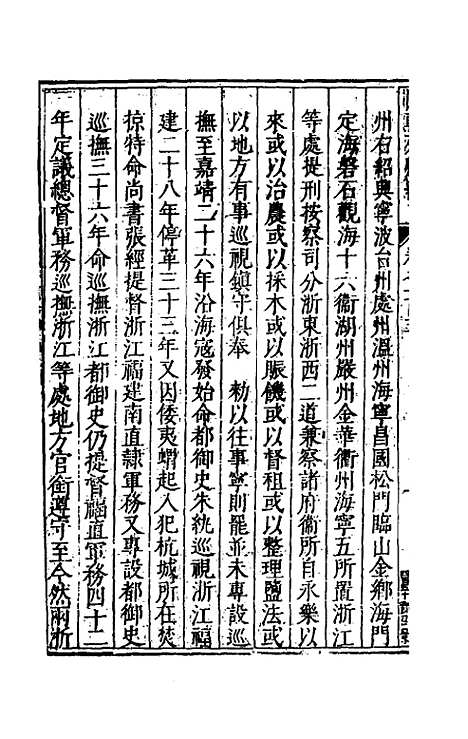 州右紹興寧波台州處州溫州海寧昌國松門臨山金鄉海門
定海磐石觀海十六衞湖州嚴州金華衢州海寧五所置浙江
等處提刑按察司分浙東浙西二道兼察諸府衞所自永樂以
來或以治農或以採木或以賑饑或以督租或以整理鹽法或
以地方有事巡視鎮守俱奉 勑以往事寧則罷並未專設巡
撫至嘉靖二十六年沿海寇發始命都御史朱紈巡視浙江福
建二十八年停革三十三年又因倭夷蝟起入犯杭城所在焚
掠特命尚書張經提督浙江福建南直隷軍務又專設都御史
巡撫三十六年命巡撫浙江都御史仍提督福直軍務四十二
年定議總督軍務巡撫浙江等處地方官銜遵守至今然兩浙